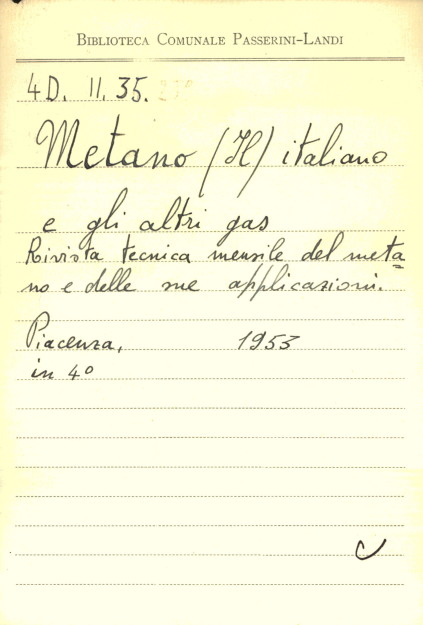 BIBLIOTECA COMUNALE PASSERINI-LANDI
4D. II. 35.
Metano (Il) italiano
e gli altri gas
Rivista tecnica mensile del meta=
no e delle sue applicazioni.
Piacenza, 1953
in 4º